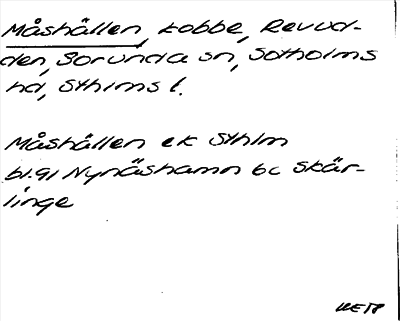 Måshällen, kobbe, Revud-
den, Sorunda sn, Sotholms
hd, Sthlms l.
Måshällen ek Sthlm
bl.91 Nynäshamn bc Skär-
linge